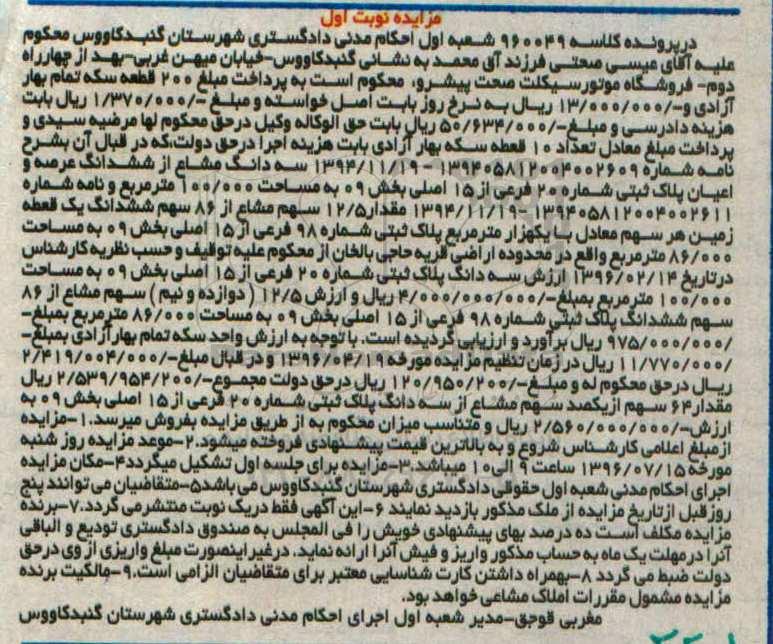 مزایده نوبت اول
درپرونده کلاسه ۹۶۰۰۴۹ شعبه اول احکام مدنی دادگستری شهرستان گنبدکاووس محکوم
علیه آقای عیسی صحتی فرزند آق محمد به نشانی گنبدکاووس-خیابان میهن غربی-بعد از چهارراه
دوم- فروشگاه موتورسیکلت صحت پیشرو، محکوم است به پرداخت مبلغ ۲۰۰ قطعه سکه تمام بهار
آزادی و-/۱۳/۰۰۰/۰۰۰ ریال به نرخ روز بابت اصل خواسته و مبلغ -/۱/۳۷۰/۰۰۰ ریال بابت
هزینه دادرسی و مبلغ-/۵۰/۶۳۴/۰۰۰ ریال بابت حق الوکاله وکیل درحق محکوم لها مرضیه سیدی و
پرداخت مبلغ معادل تعداد ۱۰ قطعه سکه بهار آزادی بابت هزینه اجرا درحق دولت،که در قبال آن بشرح
نامه شماره ۱۳۹۴۰۵۸۱۲۰۰۴۰۰۲۶۰۹ -۱۳۹۴/۱۱/۱۹ سه دانگ مشاع از ششدانگ عرصه و
اعیان پلاک ثبتی شماره ۲۰ فرعی از ۱۵ اصلی بخش ۰۹ به مساحت ۱۰۰/۰۰۰ مترمربع و نامه شماره
۱۳۹۴۰۵۸۱۲۰۰۴۰۰۲۶۱۱ -۱۳۹۴/۱۱/۱۹ مقدار۱۲/۵ سهم مشاع از ۸۶ سهم ششدانگ یک قطعه
زمین هر سهم معادل با یکهزار مترمربع پلاک ثبتی شماره ۹۸ فرعی از ۱۵ اصلی بخش ۰۹ به مساحت
۸۶/۰۰۰ مترمربع واقع در محدوده اراضی قریه حاجی بالخان از محکوم علیه توقیف و حسب نظریه کارشناس
درتاریخ ۱۳۹۶/۰۲/۱۴ ارزش سه دانگ پلاک ثبتی شماره ۲۰ فرعی از ۱۵ اصلی بخش ۰۹ به مساحت
۱۰۰/۰۰۰ مترمربع بمبلغ-/۴/۰۰۰/۰۰۰/۰۰۰ ریال و ارزش ۱۲/۵ ( دوازده و نیم ) سهم مشاع از ۸۶
سهم ششدانگ پلاک ثبتی شماره ۹۸ فرعی از ۱۵ اصلی بخش ۰۹ به مساحت ۸۶/۰۰۰ مترمربع بمبلغ-
/۹۷۵/۰۰۰/۰۰۰ ریال برآورد و ارزیابی گردیده است. با توجه به ارزش واحد سکه تمام بهارآزادی بمبلغ-
/۱۱/۷۷۰/۰۰۰ ریال در زمان تنظیم مزایده مورخه ۱۳۹۶/۰۴/۱۹ و در قبال مبلغ-/۲/۴۱۹/۰۰۴/۰۰۰
ریال درحق محکوم له و مبلغ-/۱۲۰/۹۵۰/۲۰۰ ریال درحق دولت مجموع-/۲/۵۳۹/۹۵۴/۲۰۰ ریال
مقدار۶۴ سهم ازیکصد سهم مشاع از سه دانگ پلاک ثبتی شماره ۲۰ فرعی از ۱۵ اصلی بخش ۰۹ به
ارزش-/۲/۵۶۰/۰۰۰/۰۰۰ ریال و متناسب میزان محکوم به از طریق مزایده بفروش میرسد.۱-مزایده
از مبلغ اعلامی کارشناس شروع و به بالاترین قیمت پیشنهادی فروخته میشود.۲-موعد مزایده روز شنبه
مورخه ۱۳۹۶/۰۷/۱۵ ساعت ۹ الی ۱۰ میباشد.۳-مزایده برای جلسه اول تشکیل میگردد۴-مکان مزایده
اجرای احکام مدنی شعبه اول حقوقی دادگستری شهرستان گنبدکاووس می باشد۵-متقاضیان می توانند پنج
روز قبل ازتاریخ مزایده از ملک مذکور بازدید نمایند ۶-این آگهی فقط دریک نوبت منتشرمی گردد.۷-برنده
مزایده مکلف است ده درصد بهای پیشنهادی خویش را فی المجلس به صندوق دادگستری تودیع و الباقی
آنرا درمهلت یک ماه به حساب مذکور واریز و فیش آنرا ارائه نماید. درغیراینصورت مبلغ واریزی از وی درحق
دولت ضبط می گردد ۸-بهمراه داشتن کارت شناسایی معتبر برای متقاضیان الزامی است.۹-مالکیت برنده
مزایده مشمول مقررات املاک مشاعی خواهد بود.
مغربی قوجق-مدیر شعبه اول اجرای احکام مدنی دادگستری شهرستان گنبدکاووس